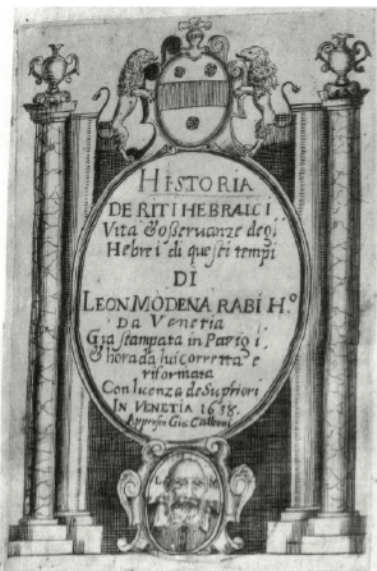 HISTORIA
DE RITI HEBRAICI
Vita & osservanze degl'
Hebrei di questi tempi
DI
LEON MODENA RABI H.º
Da Venetia
Gia stampata in Parigi
& hora da lui corretta e
riformata
Con licenza de Superiori
IN VENETIA 1638.
Appresso Gio: Calleoni